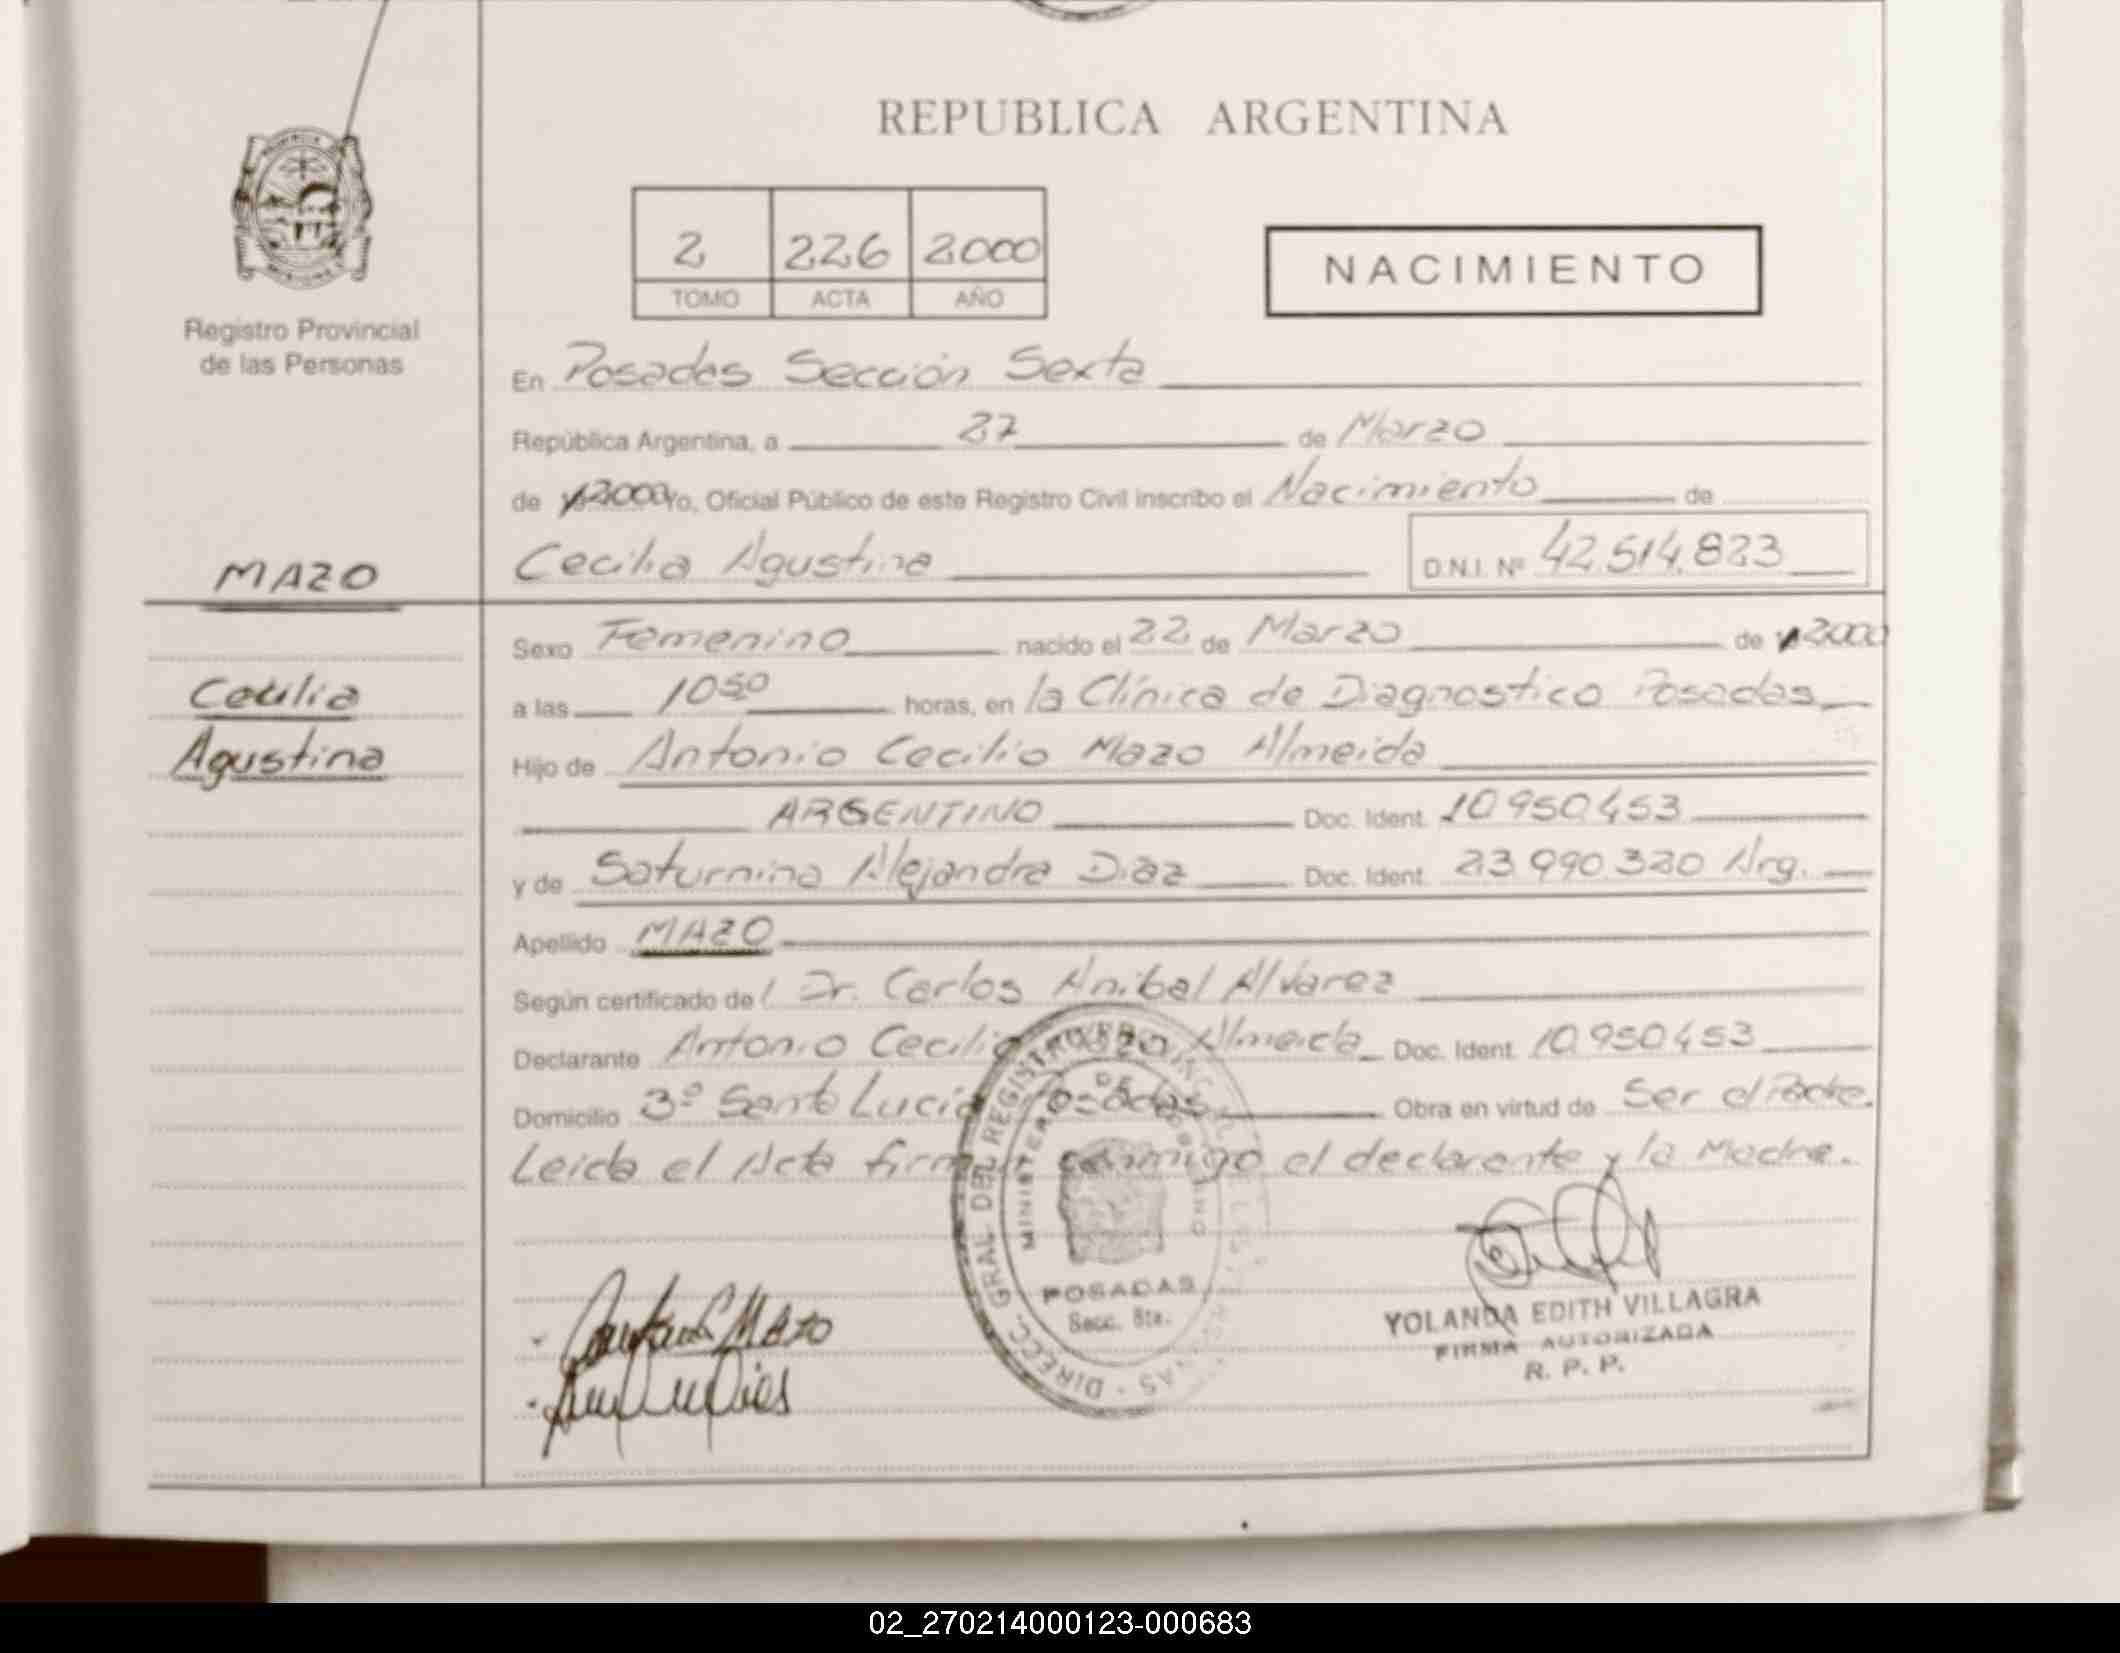 REPUBLICA ARGENTINA
2 226 2000
TOMO ACTA AÑO
NACIMIENTO
Registro Provincial
de las Personas
En Posadas Sección Sexta
República Argentina, a 27 de Marzo
de 2000 Yo, Oficial Público de este Registro Civil inscribo el Nacimiento de
MAZO
Cecilia Agustina D.N.I. Nº 42.514.823
Sexo Femenino nacido el 22 de Marzo de 2000
Cecilia
a las 10 50 horas, en la Clínica de Diagnostico Posadas
Agustina
Hijo de Antonio Cecilio Mazo Almeida
ARGENTINO Doc. Ident. 10.950.453
y de Saturnina Alejandra Diaz Doc. Ident. 23.990.320 Arg.
Apellido MAZO
Según certificado del Dr. Carlos Anibal Alvarez
Declarante Antonio Cecilio Mazo Almeida Doc. Ident. 10.950.453
Domicilio 3º Santa Lucia Posadas Obra en virtud de Ser el Padre.
Leida el Acta firman conmigo el declarante y la Madre.
DIRECC. GRAL DEL REGISTRO
MINISTERIO DE
POSADAS
Secc. 6ta.
YOLANDA EDITH VILLAGRA
FIRMA AUTORIZADA
R. P. P.
02_270214000123-000683